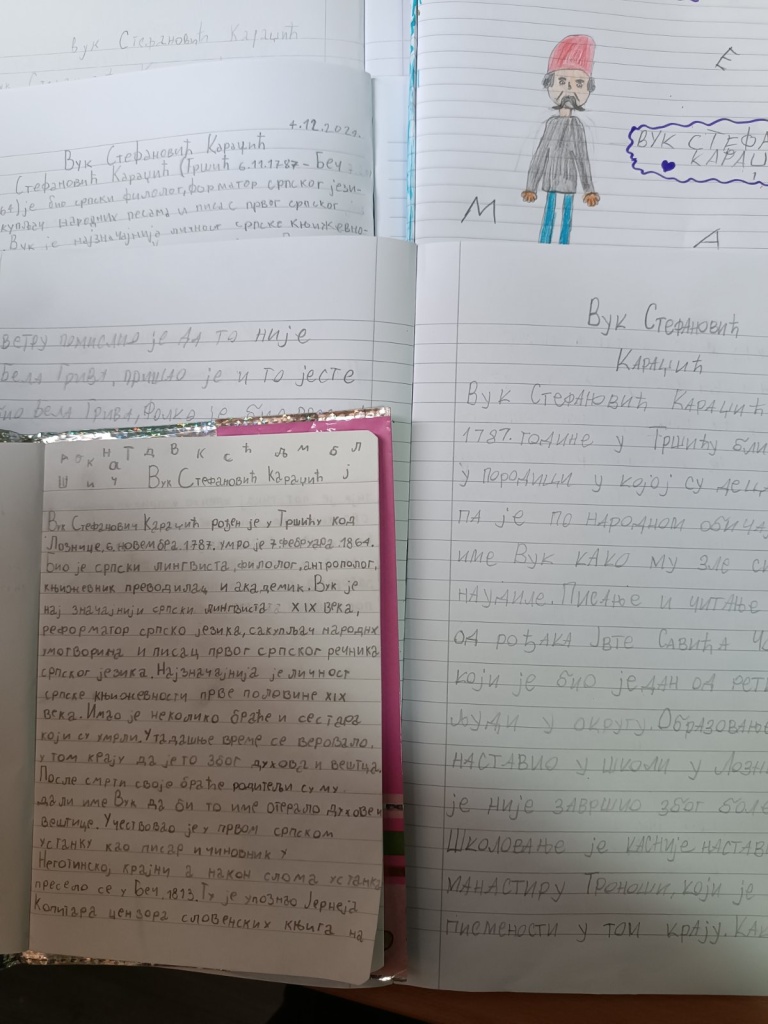 Вук Стефановић Караџић
Е
ВУК СТЕФА
КАРАЏ
М
А
Вук Стефановић Караџић
Стефановић Караџић (Тршић 6.11.1787 - Беч
је био српски филолог, форматор српског јези-
народних песама и писас првог српског
Вук је најзначајнија личност српске књижевно-
ветру помислио је да то није
Бела Грива, пришао је и то јесте
био Бела Грива, Фолко је био
Вук Стефановић
Караџић
Вук Стефановић Караџић
1787. године у Тршићу бли
у породици у којој су дец
па је по народном обича
име Вук како му зле си
наудиле. Писање и читање
од рођака Јвте Савића Ч
који је био један од рет
људи у округу. Образовање
наставио у школи у Лозн
је није завршио због боле
Школовање је касније настав
манастиру Троноши, који је
писмености у том крају. Как
о к н т д в к с ћ љ м б л
ш и а ч Вук Стефановић Караџић Ј
Вук Стефановић Караџић рођен је у Тршићу код
Лознице, 6. новембра 1787. умро је 7 фебруара 1864.
Био је српски лингвиста, филолог, антрополог,
књижевник преводилац и академик. Вук је
нај значајнији српски лингвиста XIX века,
реформатор српско језика, сакупљач народних
умотворина и писац првог српског речника
српског језика. Најзначајнија је личност
српске књижевности прве половине XIX
века. Имао је неколико браће и сестара
који су умрли. У тадашње време се веровало,
у том крају да је то због духова и вештца.
После смрти своје браће родитељи су му
дали име Вук да би то име отерало духове и
вештице. Учествовао је у првом српском
устанку као писар и чиновник у
Неготинској крајни а након слома устанка
пресело се у Беч. 1813. Ту је упознао Јернеја
Копитара цензора словенских књига на